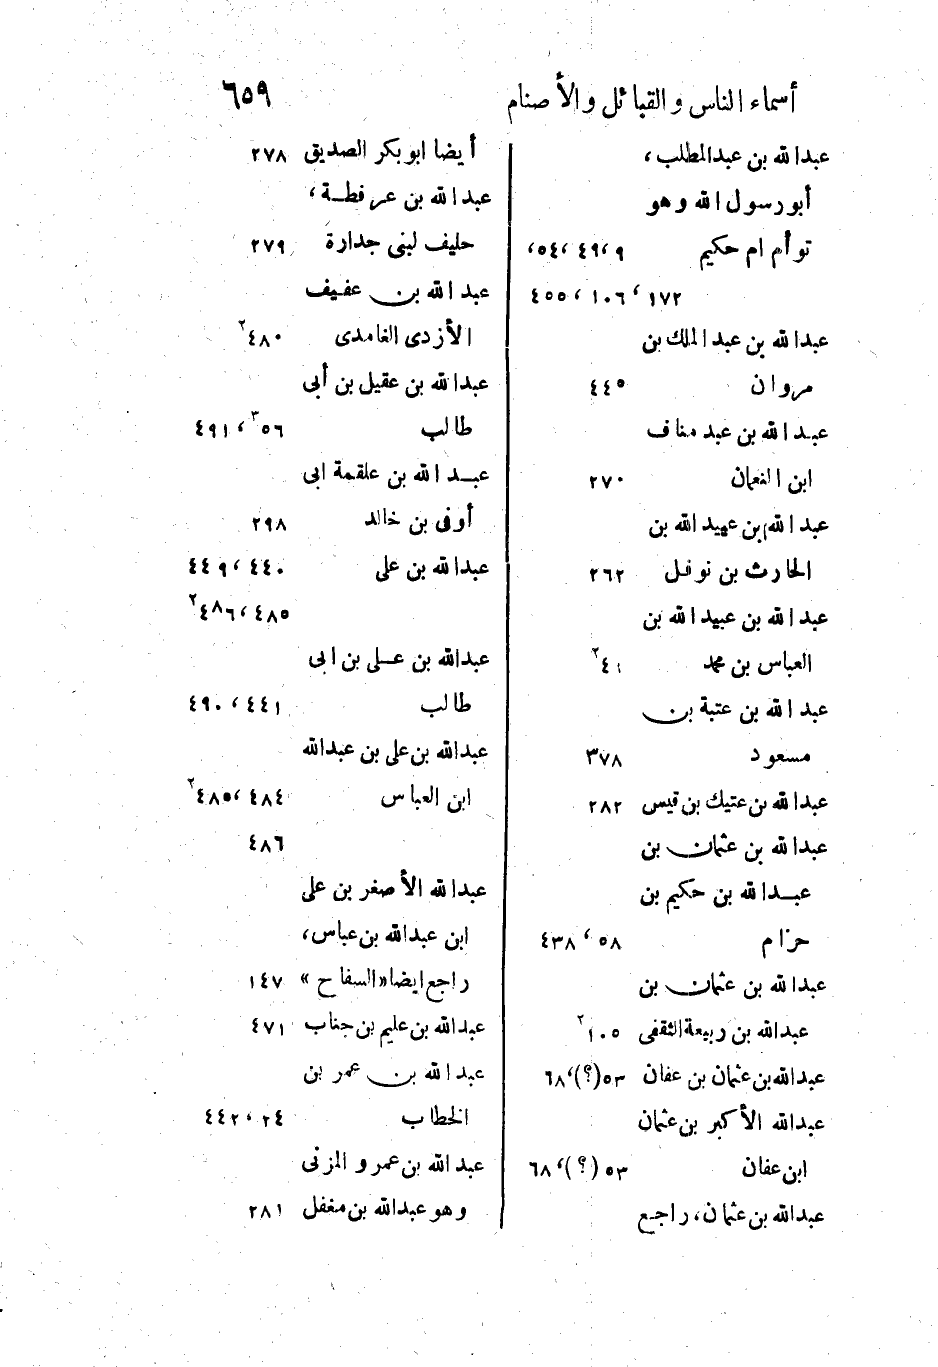 أسماء الناس والقبائل والأصنام ٦٥٩
عبدالله بن عبدالمطلب،
أبو رسول الله وهو
توأم ام حكيم ٩، ٤٩، ٥٤،
١٧٢، ١٠٦، ٤٥٥
عبدالله بن عبد الملك بن
مروان ٤٤٥
عبدالله بن عبد مناف
ابن النعمان ٢٧٠
عبدالله بن عبيد الله بن
الحارث بن نوفل ٢٦٢
عبدالله بن عبيدالله بن
العباس بن محمد ٤١٢
عبدالله بن عتبة بن
مسعود ٣٧٨
عبدالله بن عتيك بن قيس ٢٨٢
عبدالله بن عثمان بن
عبدالله بن حكيم بن
حزام ٥٨، ٤٣٨
عبدالله بن عثمان بن
عبدالله بن ربيعة الثقفى ١٠٥٢
عبدالله بن عثمان بن عفان ٥٣(؟)،٦٨
عبدالله الأكبر بن عثمان
ابن عفان ٥٣ (؟)،٦٨
عبدالله بن عثمان، راجع
أيضا ابو بكر الصديق ٢٧٨
عبدالله بن عرفطة،
حليف لبنى جدارة ٢٧٩
عبدالله بن عفيف
الأزدى الغامدى ٤٨٠٢
عبدالله بن عقيل بن أبى
طالب ٥٦٣، ٤٩١
عبدالله بن علقمة ابى
أوفى بن خالد ٢٩٨
عبدالله بن على ٤٤٠، ٤٤٩
٤٨٥، ٤٨٦٢
عبدالله بن على بن ابى
طالب ٤٤١، ٤٩٠
عبدالله بن على بن عبدالله
ابن العباس ٤٨٤، ٤٨٥٢
٤٨٦
عبدالله الأصغر بن على
ابن عبدالله بن عباس،
راجع ايضا «السفاح» ١٤٧
عبدالله بن عليم بن جناب ٤٧١
عبدالله بن عمر بن
الخطاب ٢٤، ٤٤٢
عبدالله بن عمرو المزنى
وهو عبدالله بن مغفل ٢٨١